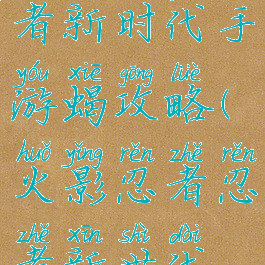 者新时代手
yóu xiē gōng lüè
游蝎攻略(
huǒ yǐng rěn zhě rěn
火影忍者忍
zhě xīn shí dài
者新时代